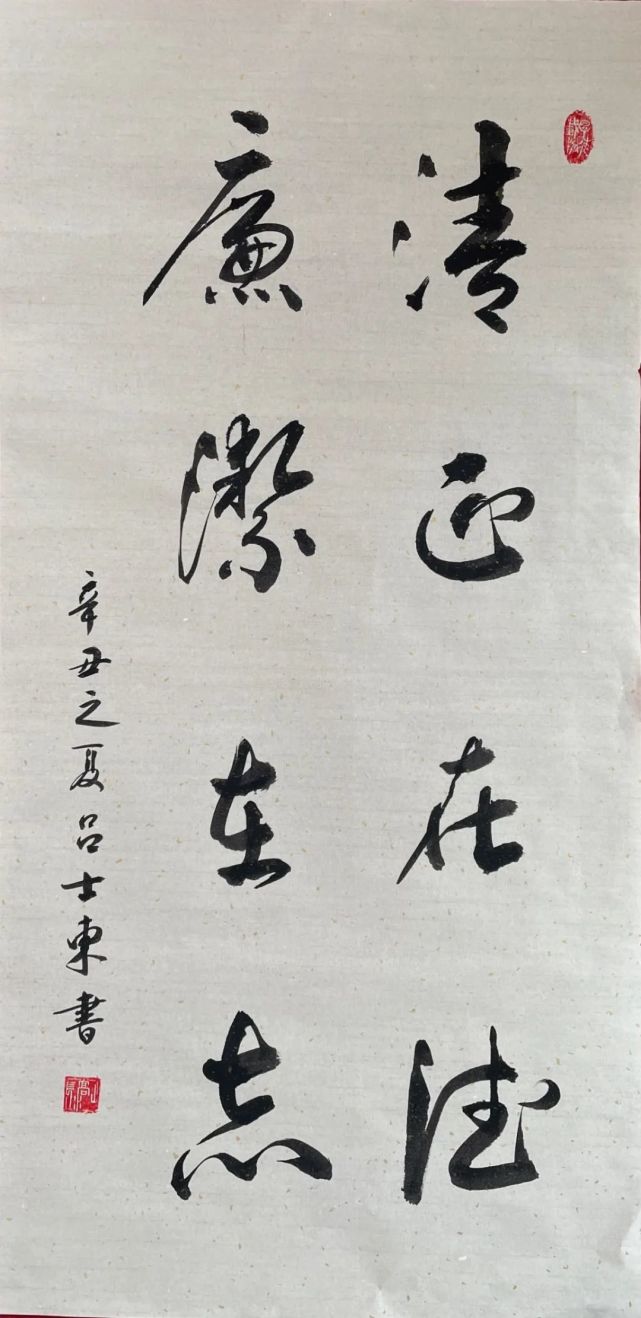 清正在德
廉潔在志
辛丑之夏吕士東書